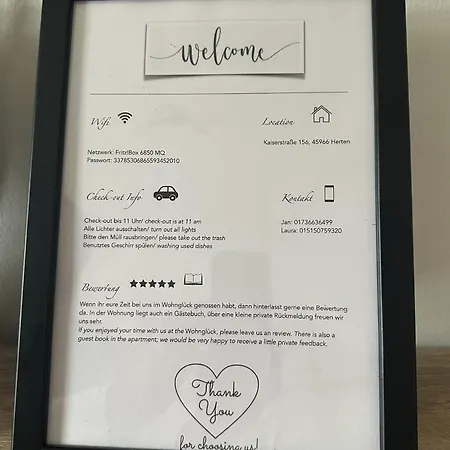 Welcome
Wifi
Location
Kaiserstraße 156, 45966 Herten
Netzwerk: Fritz!Box 6850 MQ
Passwort: 33785306865593452010
Check-out Info
Kontakt
Check-out bis 11 Uhr/ check-out is at 11 am
Alle Lichter ausschalten/ turn out all lights
Bitte den Müll rausbringen/ please take out the trash
Benutztes Geschirr spülen/ washing used dishes
Jan: 01736636499
Laura: 015150759320
Bewertung
Wenn ihr eure Zeit bei uns im Wohnglück genossen habt, dann hinterlasst gerne eine Bewertung
da. In der Wohnung liegt auch ein Gästebuch, über eine kleine private Rückmeldung freuen wir
uns sehr.
If you enjoyed your time with us at the Wohnglück, please leave us an review. There is also a
guest book in the apartment; we would be very happy to receive a little private feedback.
Thank
You
for choosing us!